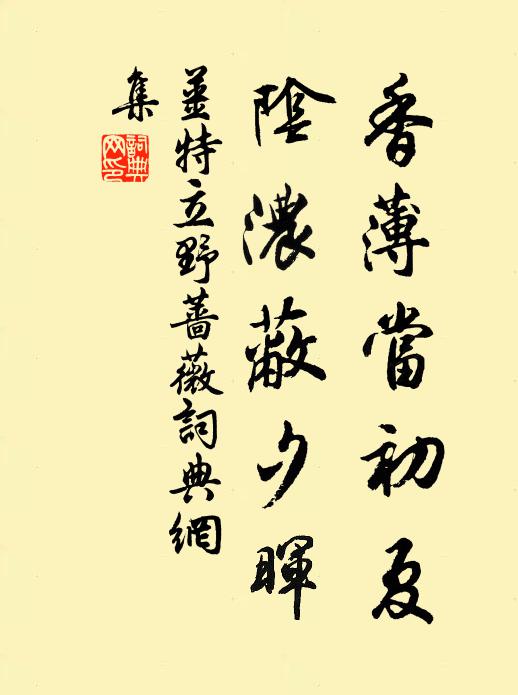 香薄當初夏
陰濃蔽夕暉
姜特立野薔薇詞典網
集
詞典
网印